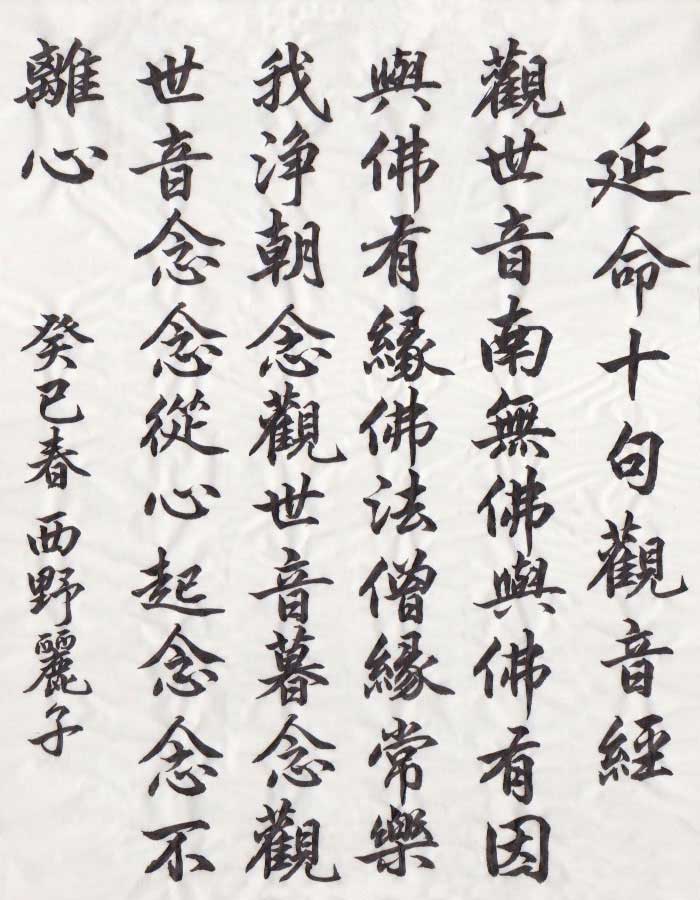 延命十句觀音經
觀世音南無佛與佛有因
與佛有縁佛法僧縁常樂
我浄朝念觀世音暮念觀
世音念念從心起念念不
離心
癸巳春 西野麗子